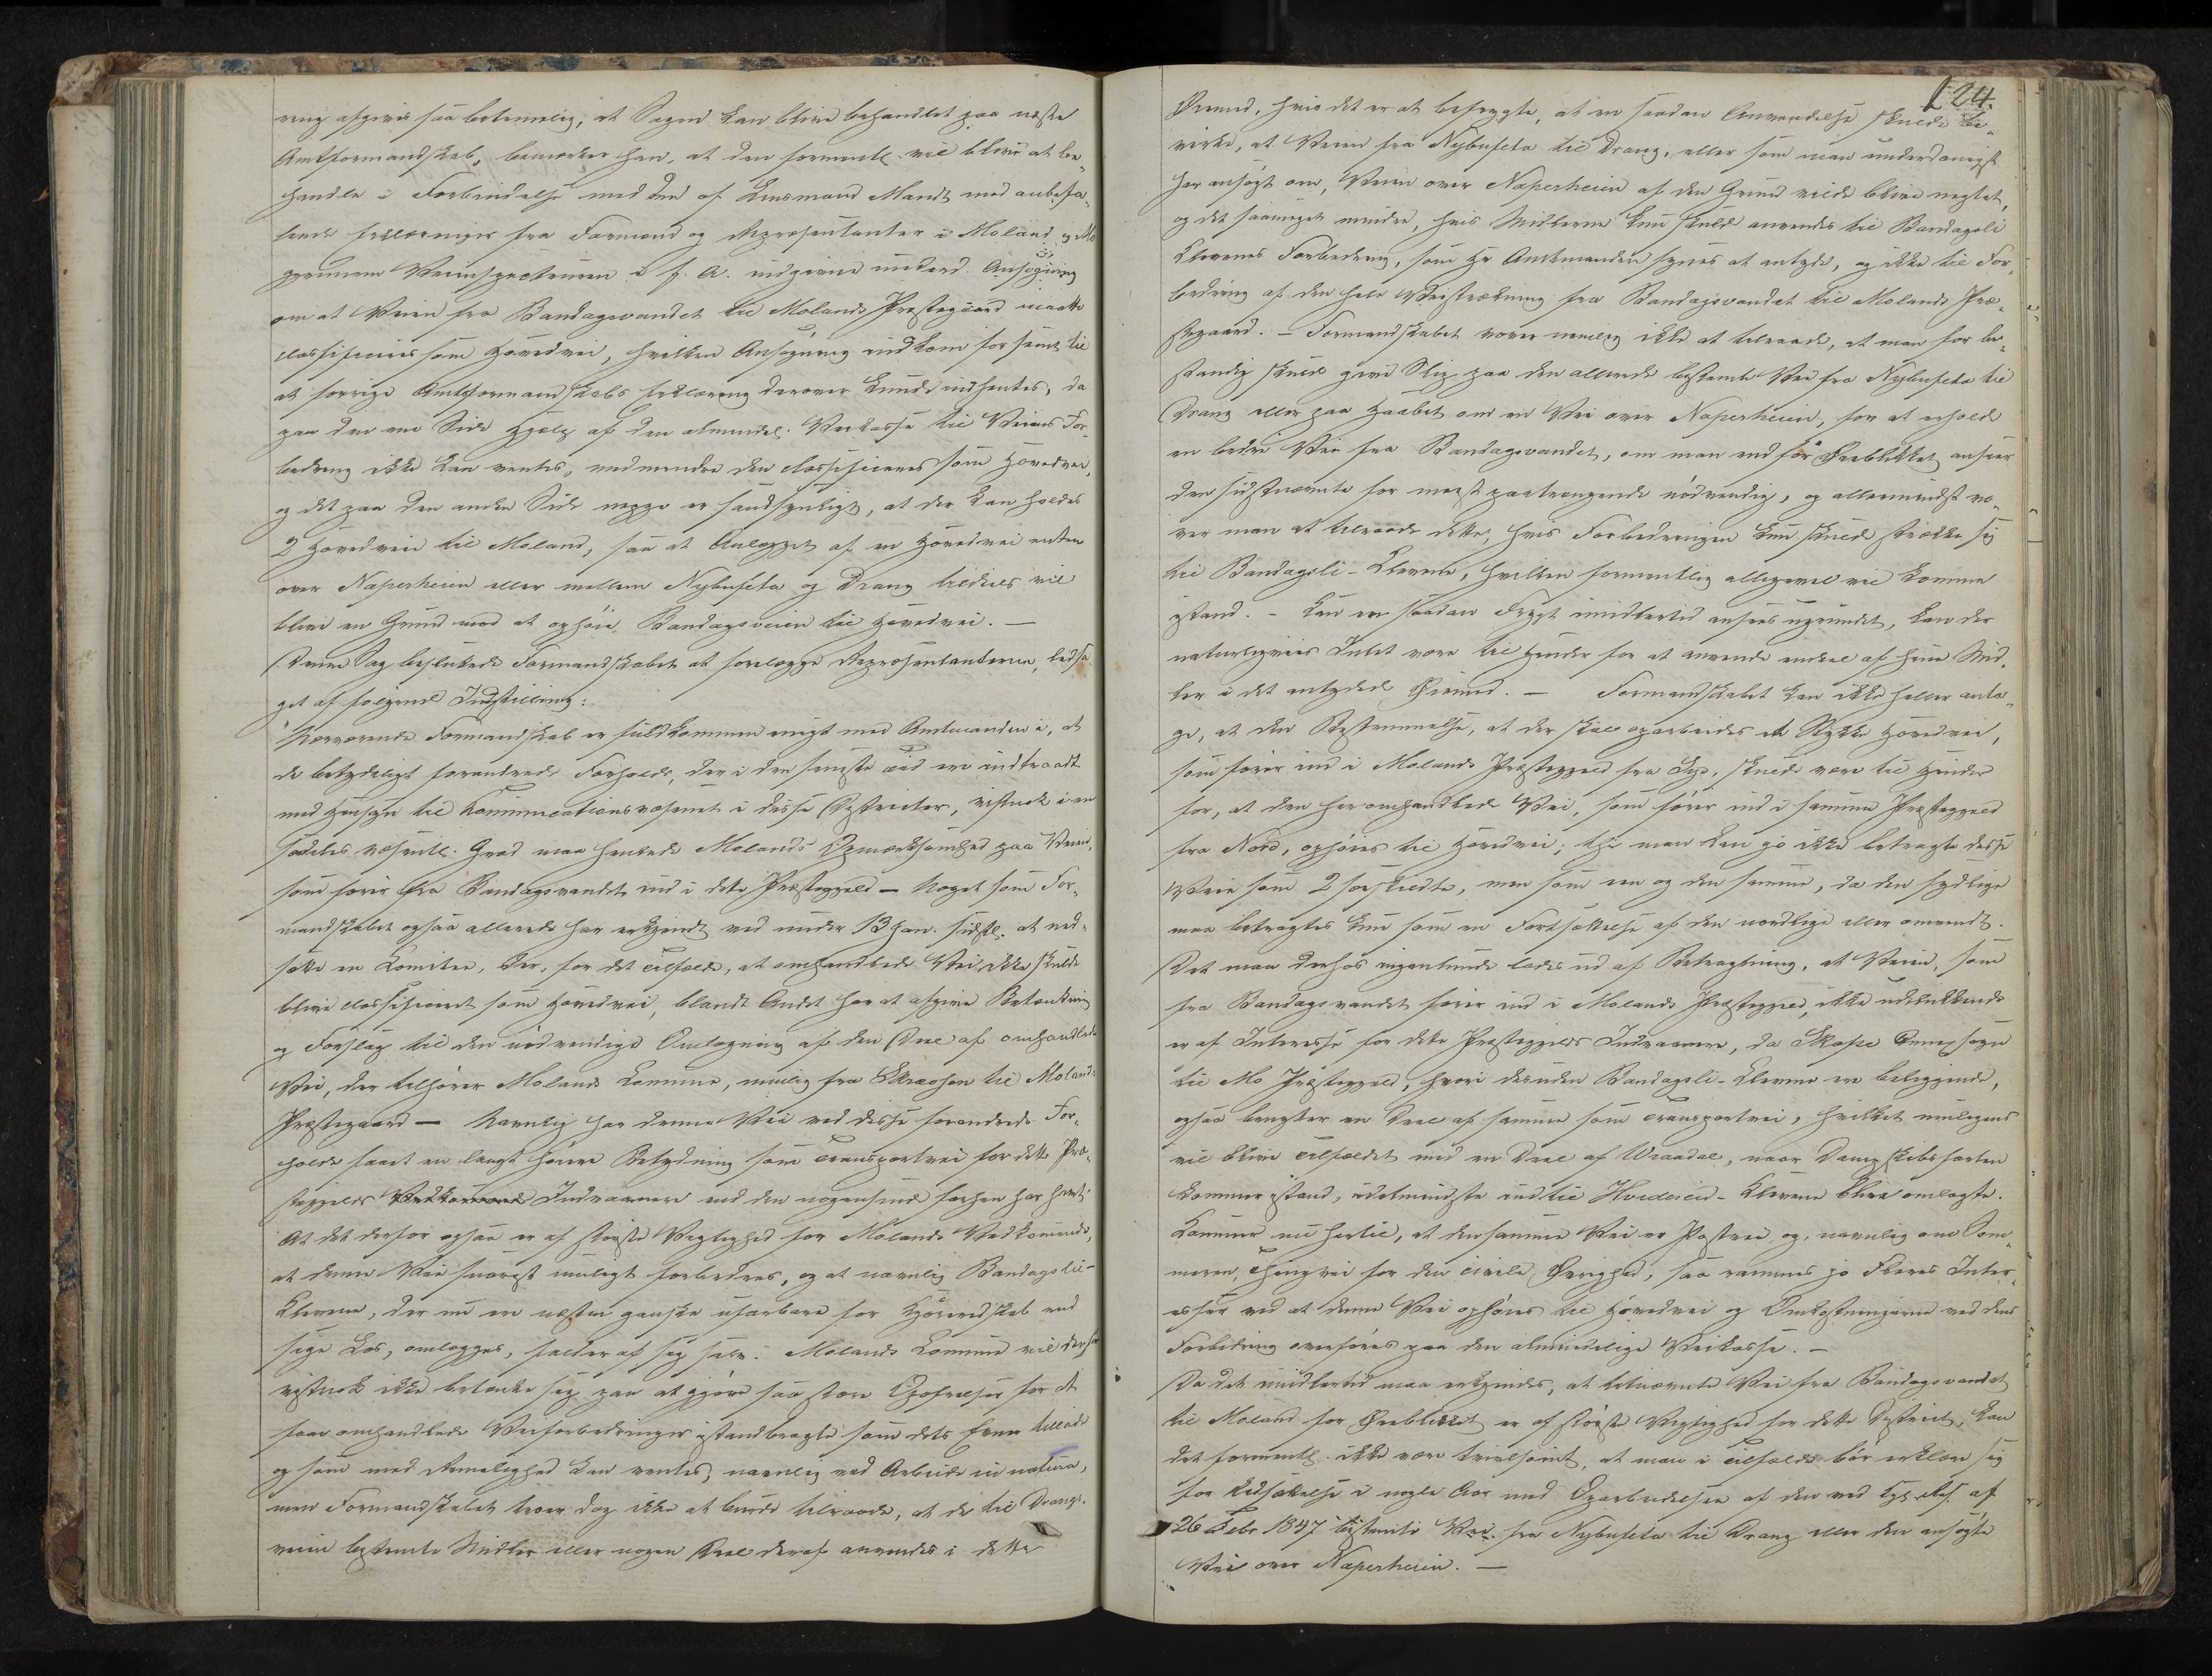 ring afgives saa betimelig, at Sagen kan blive behandlet paa næste
Amtsformandskab, bemærker han, at den forment. vil blive at be-
handle i Forbindelse med den af Lensmand Mandt med anbefa-
lende Erklæringer fra Formænd og Repræsentanter i Moland og Mo
gjennem Veiinspecteuren i f. A. indgivne underd. Ansøgning
om at Veien fra Bandagsvandet til Molands Præstegaard maatte
classificeres som Hovedvei, hvilken Ansøgning indkom for sent til
at forrige Amtsformandskabs Erklæring derover kunde indhentes, da
paa den ene Side Hjelp af den almindel. Veikasse til Veiens For-
bedring ikke kan ventes, medmindre den classificeres som Hovedvei,
og det paa den anden Side neppe er sandsynligt, at der kan holdes
2 Hovedveie til Moland, saa at Anlægget af en Hovedvei enten
over Naperheien eller mellem Nybufeta og Drang tildeels vil
blive en Grund mod at ophøie Bandagsveien til Hovedvei. —
Denne Sag besluttede Formandskabet at forelægge Repræsentanterne, ledsa-
get af følgende Indstilling:
"Nærværende Formandskab er fuldkommen enigt med Amtmanden i, at
de betydeligt forandrede Forholde, der i den seneste Tid ere indtraadt
med Hensyn til Kommunicationsvæsenet i disse Districter, vistnok i en
særdeles væsentl. Grad maa henlede Molands Opmærksomhed paa Veien,
som fører fra Bandagsvandet ind i dette Præstegjeld — Noget som For-
mandskabet ogsaa allerede har erkjendt ved under 13 Jan. sidstl. at ned-
sætte en Komitee, der, for det Tilfælde, at omhandlede Vei ikke skulde
blive classificeret som Hovedvei, blandt Andet har at afgive Betænkning
og Forslag til den nødvendige Omlægning af den Deel af omhandlede
Vei, der tilhører Molands Comune, nemlig fra Skræosen til Molands
Præstegaard — Navnlig har denne Vei ved disse forandrede For-
holde faaet en langt høiere Betydning som Transportvei for dette Præ-
stegjelds Indvaanere end den nogensinde forhen har havt;
At det derfor ogsaa er af største Vigtighed for Molands Vedkommende,
at denne Vei snarest muligt forbedres, og at navnlig Bandagslii-
Klevene, der nu ere næsten ganske ufarbare for Kjøreredskab med
sige Læs, omlægges, falder af sig selv. Molands Comune vil derfor
vistnok ikke betænke sig paa at gjøre saa store Opofrelser for at
faae omhandlede Veiforbedringer istandbragte som dets Evne tillade
og som med Rimelighed kan ventes, navnlig ved Arbeide in natura,
men Formandskabet troer dog ikke at burde tilraade, at de til Drangs-
veien bestemte Midler eller nogen Deel deraf anvendes i dette
224.
Øiemed, hvis det er at befrygte, at en saadan Anvendelse skulde be-
virke, at Veien fra Nybufeta til Drang, eller som man underdanigst
har ansøgt om, Veien over Naperheien af den Grund vilde blive negtet,
og det saameget mindre, hvis Midlerne kun skulde anvendes til Bandagsli
Klevenes Forbedring, som Hr Amtmanden synes at antyde, og ikke til For-
bedring af den hele Veistrækning fra Bandagsvandet til Molands Præ-
stegaard. — Formandskabet vover nemlig ikke at tilraade, at man for be-
standig skulde give Slip paa den allerede bestemte Vei fra Nybufeta til
Drang eller paa Haabet om en Vei over Naperheien, for at erholde
en bedre Vei fra Bandagsvandet, om man end for Øieblikket anseer
den sidstnævnte for meest paatrængende nødvendig, og allermindst vo-
ver man at tilraade dette, hvis Forbedringen kun skulde strække sig
til Bandagsli-Klevene, hvilken formentlig alligevel vil komme
istand. — Kan en saadan Frygt imidlertid ansees ugrundet, kan der
naturligviis Intet være til Hinder for at anvende endeel af hine Mid-
ler i det antydede Øiemed. — Formandskabet kan ikke heller anta-
ge, at den Bestemmelse, at der skal oparbeides et Stykke Hovedvei,
som fører ind i Molands Præstegjeld fra Syd, skulde være til Hinder
for, at den heromhandlede Vei, som fører ind i samme Præstegjeld
fra Nord, ophøies til Hovedvei; thi man kan jo ikke betragte disse
Veie som 2 forskjellte, men som een og den samme, da den sydlige
maa betragtes kun som en Fortsættelse af den nordlige eller omvendt.
Det maa derhos ingenlunde lades ud af Betragtning, at Veien, som
fra Bandagsvandet fører ind i Molands Præstegjeld, ikke udelukkende
er af Interesse for dette Præstegjelds Indvaanere, da Skafse Annexsogn
til Mo Præstegjeld, hvori desuden Bandagsli-Klevene ere beliggende,
ogsaa benytter en Deel af samme som Transportvei, hvilket muligens
vil blive Tilfældet med en Deel af Wraadal, naar Dampskibsfarten
kommer istand, idetmindste indtil Hvideseid-Klevene blive omlagte.
Kommer nu hertil, at densamme Vei er Postvei og, navnlig om Som-
meren, Thingvei for den civile Øvrighed, saa rammes jo Fleres Inter-
esser ved at denne Vei ophøies til Hovedvei og Omkostningerne ved dens
Forbedring overføres paa den almindelige Veikasse. —
Da det imidlertid maa erkjendes, at bemeldte Vei fra Bandagsvandet
til Moland for Øieblikket er af største Vigtighed for dette District, kan
det formentl. ikke være tvivlsomt, at man i Tilfælde bør erklære sig
for Udsættelse i nogle Aar med Oparbeidelsen af den ved Kgl. Res. af
26 Febr 1847 bestemte Vei fra Nybufeta til Drang eller den ansøgte
Vei over Naperheien. —